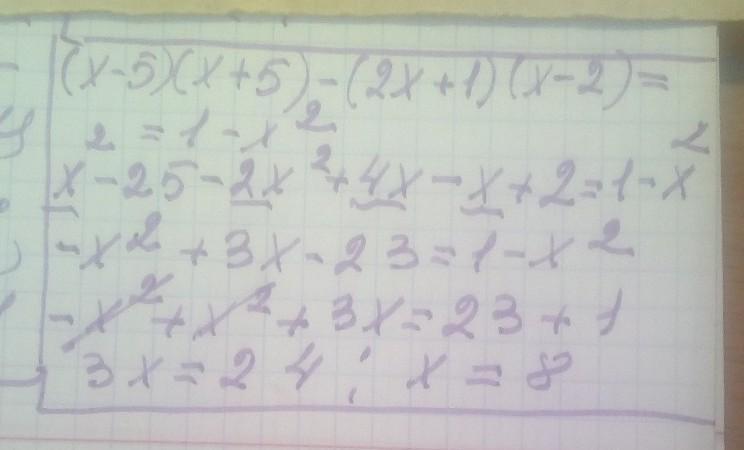 (x-5)(x+5)-(2x+1)(x-2)=
=1-x²
x²-25-2x²+4x-x+2=1-x²
-x²+3x-23=1-x²
-x²+x²+3x=23+1
3x=24; x=8